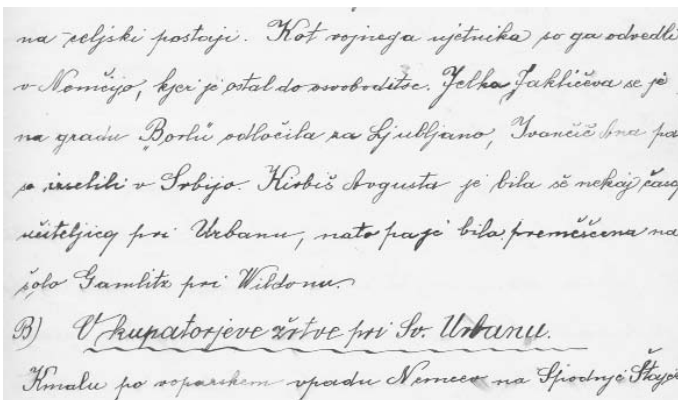 na celjski postaji. Kot vojnega ujetnika so ga odvedli
v Nemčijo, kjer je ostal do osvoboditve. Jelka Jakličeva se je
na gradu "Borlu" odločila za Ljubljano, Ivančič Ana pa
so izselili v Srbijo. Kirbiš Avgusta je bila še nekaj časa
učiteljica pri Urbanu, nato pa je bila premeščena na
šolo Gamlitz pri Wildonu.
B) V kupatorjeve žrtve pri Sv. Urbanu.
Kmalu po roparskem vpadu Nemcev na Spodnje Štajer